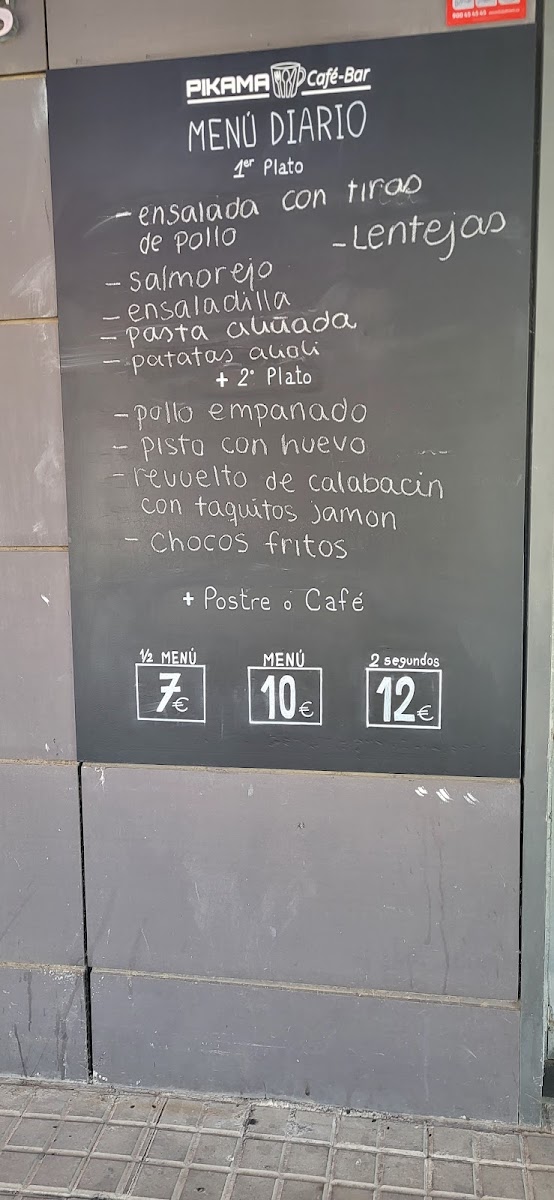 PIKAMA Café-Bar
MENÚ DIARIO
1er Plato
- ensalada con tiras
de pollo
- Lentejas
- salmorejo
- ensaladilla
- pasta aliñada
- patatas alioli
+ 2º Plato
- pollo empanado
- pisto con huevo
- revuelto de calabacin
con taquitos jamon
- chocos fritos
+ Postre o Café
½ MENÚ
7€
MENÚ
10€
2 segundos
12€